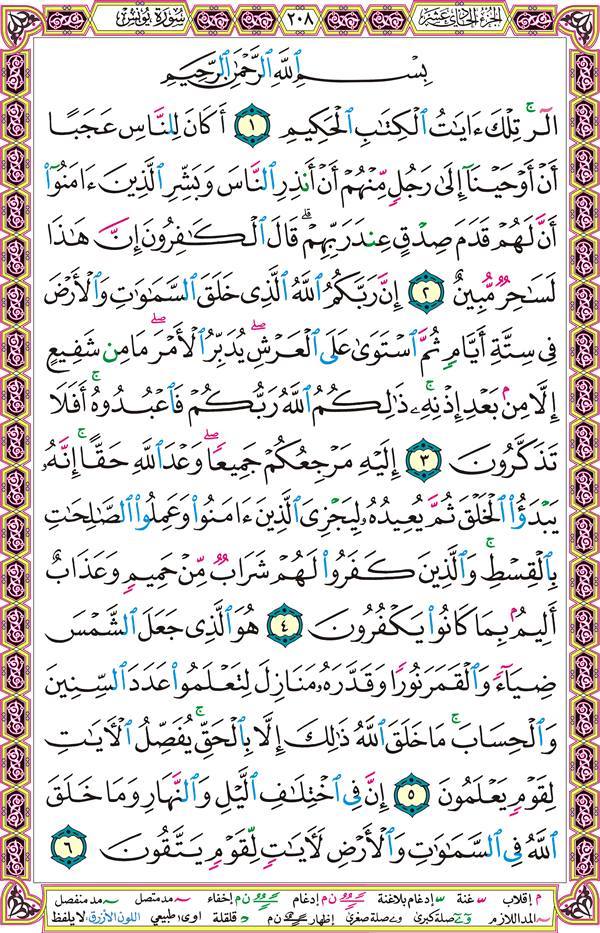 الجزء الحادي عشر ٢٠٨ سورة يونس
بِسْمِ ٱللَّهِ ٱلرَّحْمَٰنِ ٱلرَّحِيمِ
الٓرۚ تِلْكَ ءَايَٰتُ ٱلْكِتَٰبِ ٱلْحَكِيمِ ١ أَكَانَ لِلنَّاسِ عَجَبًا
أَنْ أَوْحَيْنَآ إِلَىٰ رَجُلٍ مِّنْهُمْ أَنْ أَنذِرِ ٱلنَّاسَ وَبَشِّرِ ٱلَّذِينَ ءَامَنُوٓا۟
أَنَّ لَهُمْ قَدَمَ صِدْقٍ عِندَ رَبِّهِمْۗ قَالَ ٱلْكَٰفِرُونَ إِنَّ هَٰذَا
لَسَٰحِرٌ مُّبِينٌ ٢ إِنَّ رَبَّكُمُ ٱللَّهُ ٱلَّذِى خَلَقَ ٱلسَّمَٰوَٰتِ وَٱلْأَرْضَ
فِى سِتَّةِ أَيَّامٍ ثُمَّ ٱسْتَوَىٰ عَلَى ٱلْعَرْشِۖ يُدَبِّرُ ٱلْأَمْرَۖ مَا مِن شَفِيعٍ
إِلَّا مِنۢ بَعْدِ إِذْنِهِۦۚ ذَٰلِكُمُ ٱللَّهُ رَبُّكُمْ فَٱعْبُدُوهُۚ أَفَلَا
تَذَكَّرُونَ ٣ إِلَيْهِ مَرْجِعُكُمْ جَمِيعًاۖ وَعْدَ ٱللَّهِ حَقًّاۚ إِنَّهُۥ
يَبْدَؤُا۟ ٱلْخَلْقَ ثُمَّ يُعِيدُهُۥ لِيَجْزِىَ ٱلَّذِينَ ءَامَنُوا۟ وَعَمِلُوا۟ ٱلصَّٰلِحَٰتِ
بِٱلْقِسْطِۚ وَٱلَّذِينَ كَفَرُوا۟ لَهُمْ شَرَابٌ مِّنْ حَمِيمٍ وَعَذَابٌ
أَلِيمٌۢ بِمَا كَانُوا۟ يَكْفُرُونَ ٤ هُوَ ٱلَّذِى جَعَلَ ٱلشَّمْسَ
ضِيَآءً وَٱلْقَمَرَ نُورًا وَقَدَّرَهُۥ مَنَازِلَ لِتَعْلَمُوا۟ عَدَدَ ٱلسِّنِينَ
وَٱلْحِسَابَۚ مَا خَلَقَ ٱللَّهُ ذَٰلِكَ إِلَّا بِٱلْحَقِّۚ يُفَصِّلُ ٱلْءَايَٰتِ
لِقَوْمٍ يَعْلَمُونَ ٥ إِنَّ فِى ٱخْتِلَٰفِ ٱلَّيْلِ وَٱلنَّهَارِ وَمَا خَلَقَ
ٱللَّهُ فِى ٱلسَّمَٰوَٰتِ وَٱلْأَرْضِ لَءَايَٰتٍ لِّقَوْمٍ يَتَّقُونَ ٦
م إقلاب غنة إدغام بلاغنة ن م إدغام ن م إخفاء مد متصل مد منفصل
المد اللازم صلة كبرى صلة صغرى إظهار ن م قلقلة اوى طبيعي اللون الأزرق لا يلفظ